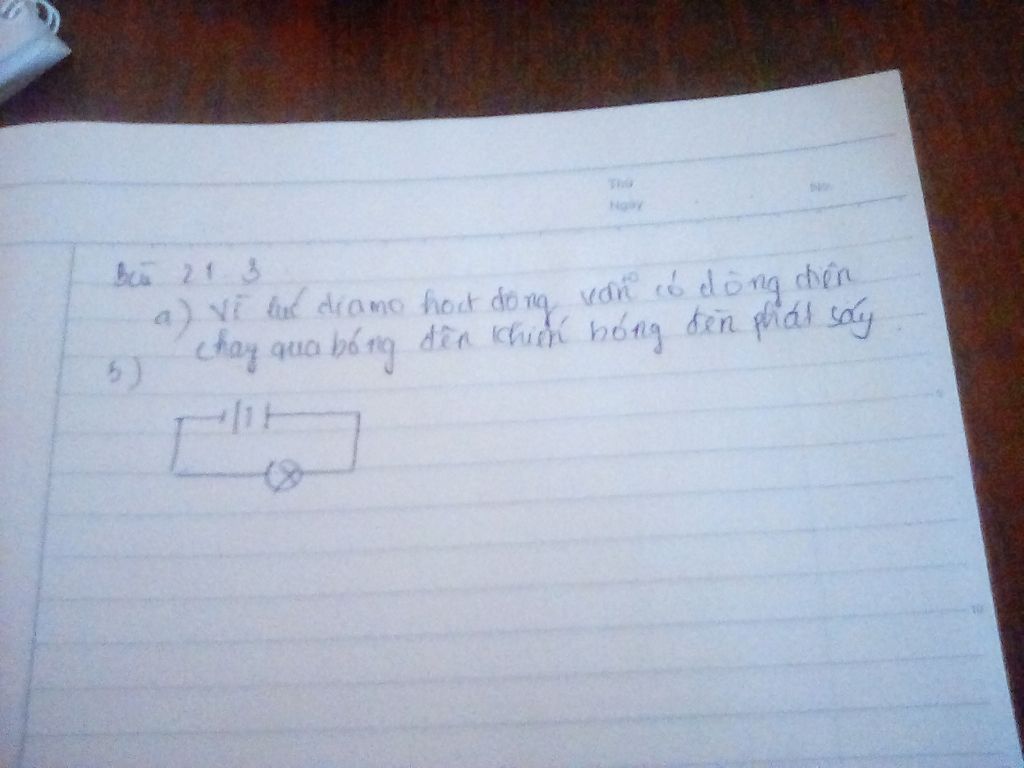 Thứ
No.
Ngày
Bài 21.3
a) Vì lúc điamo hoạt động vẫn có dòng điện
chạy qua bóng đèn khiến bóng đèn phát sáy
b)
10